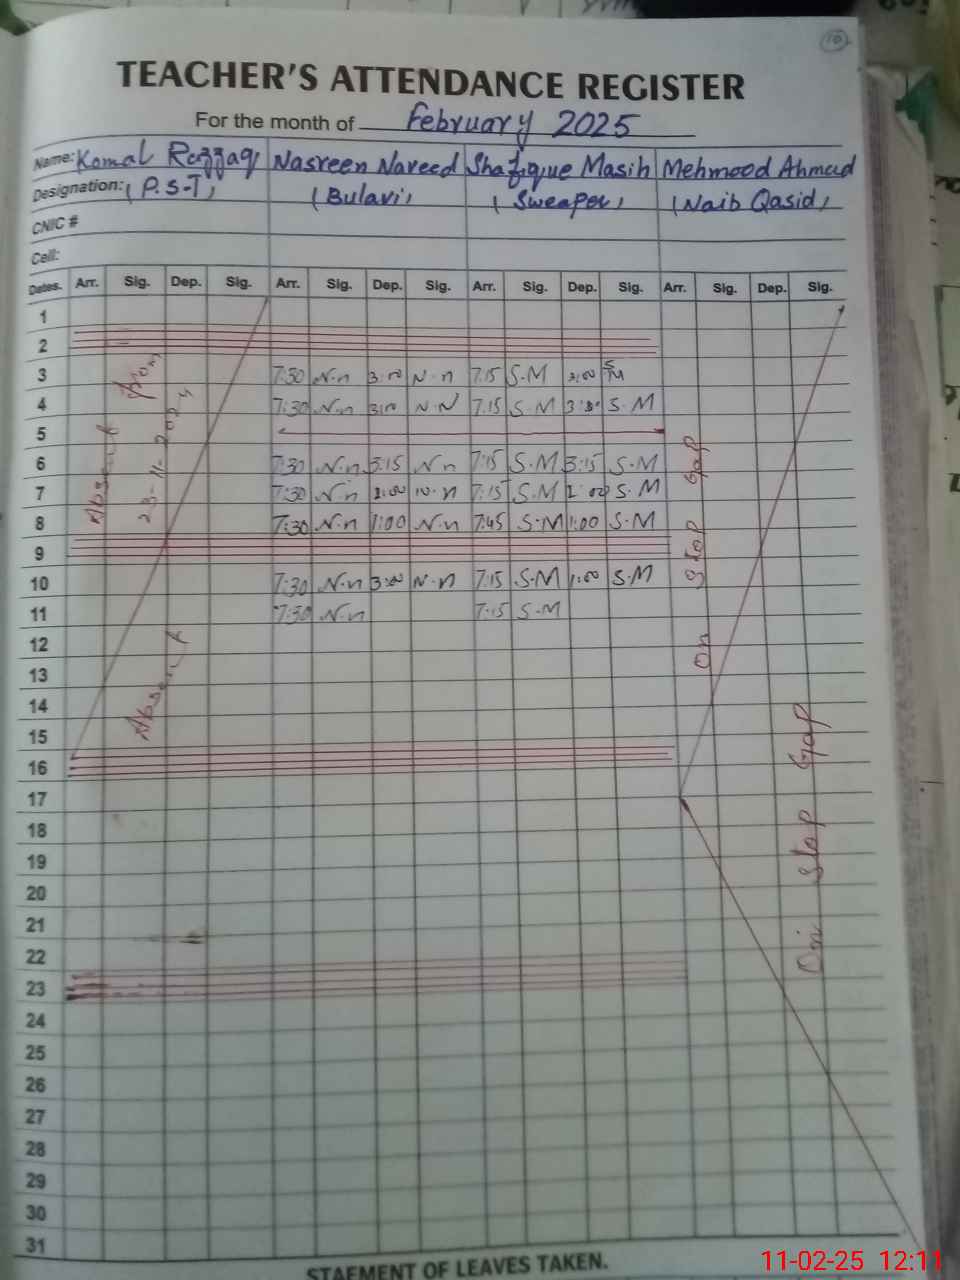 10
TEACHER'S ATTENDANCE REGISTER
For the month of February 2025
Name: Komal Razzaq Nasreen Naveed Shafique Masih Mehmood Ahmad
Designation: (P.S-T) (Bulavi) (Sweaper) (Naib Qasid)
CNIC #
Cell:
Dates. Arr. Sig. Dep. Sig. Arr. Sig. Dep. Sig. Arr. Sig. Dep. Sig. Arr. Sig. Dep. Sig.
1
2
3 7:30 N.n 3:00 N.n 7:15 S.M 3:00 S.M
4 7:30 N.n 3:00 N.N 7:15 S.M S.M
5
6 7:30 N.n 3:15 N.n 7:15 S.M 3:15 S.M
7 7:30 N.n N.n 7:15 S.M S.M
8 7:30 N.n 1:00 N.n 7:45 S.M 1:00 S.M
9
10 7:30 N.n 3:00 N.n 7:15 S.M 1:00 S.M
11 7:30 N.n 7:15 S.M
12
13
14
15
16
17
18
19
20
21
22
23
24
25
26
27
28
29
30
31
Absent From
23-11-2024
Absent
On Stop Gap
On Stop Gap
STAEMENT OF LEAVES TAKEN.
11-02-25 12:11